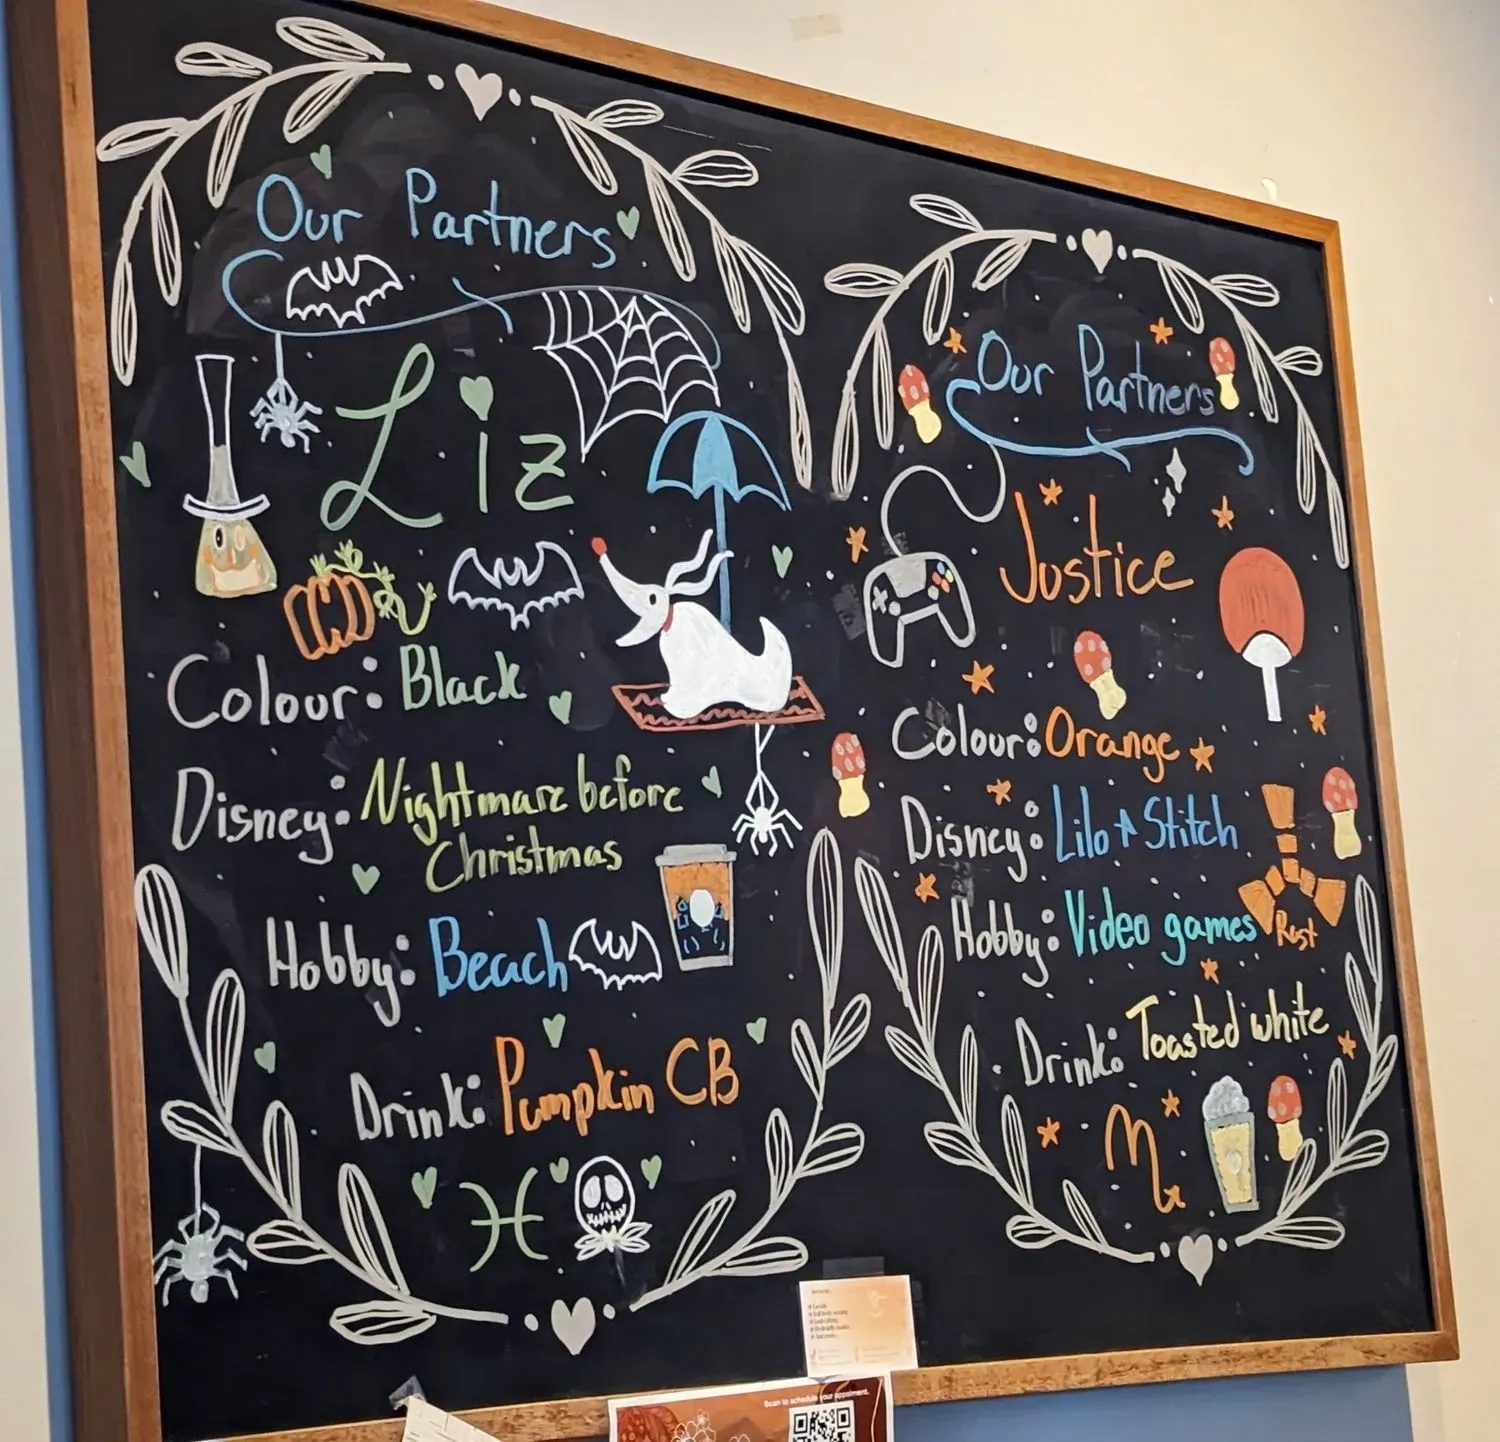 Our Partners
Liz
Colour: Black
Disney: Nightmare before
Christmas
Hobby: Beach
Drink: Pumpkin CB
Our Partners
Justice
Colour: Orange
Disney: Lilo + Stitch
Hobby: Video games
Rust
Drink: Toasted white
Scan to schedule your appoiment.